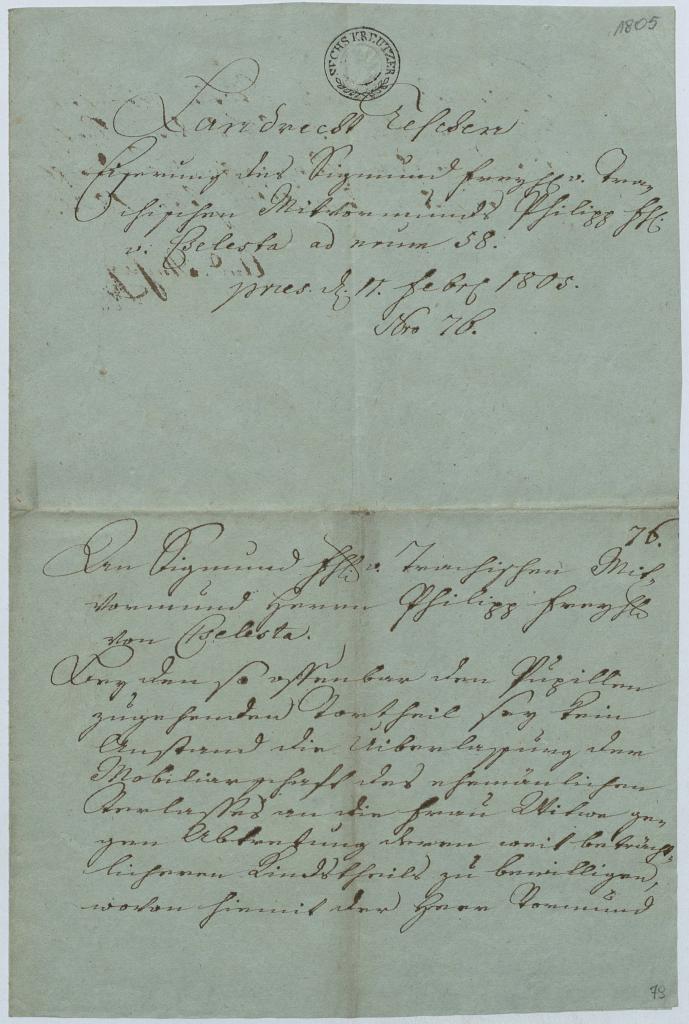 1805
SECHS KREUTZER
Landrecht Teschen
des Sigmund Freyhl. v. Tra-
chischen Mitvormunds Philipp Fhl.
v. Beleſta ad num 58.
pries. d. 17. Febr 1805.
Nro 76.
76.
An Sigmund Fhl. v. Trachischen Mit-
vormund Herrn Philipp Freyhl.
von Beleſta.
Bey den so offenbar den Pupillen
zugehenden Vortheil sey kein
Anstand die Uiberlassung der
Mobiliarschaft des ehemänlichen
Verlasses an die Frau Witwe ge-
gen Abtretung deren weit beträcht-
licheren Kindstheils zu bewilligen,
wovon hiemit der Herr Vormund
79